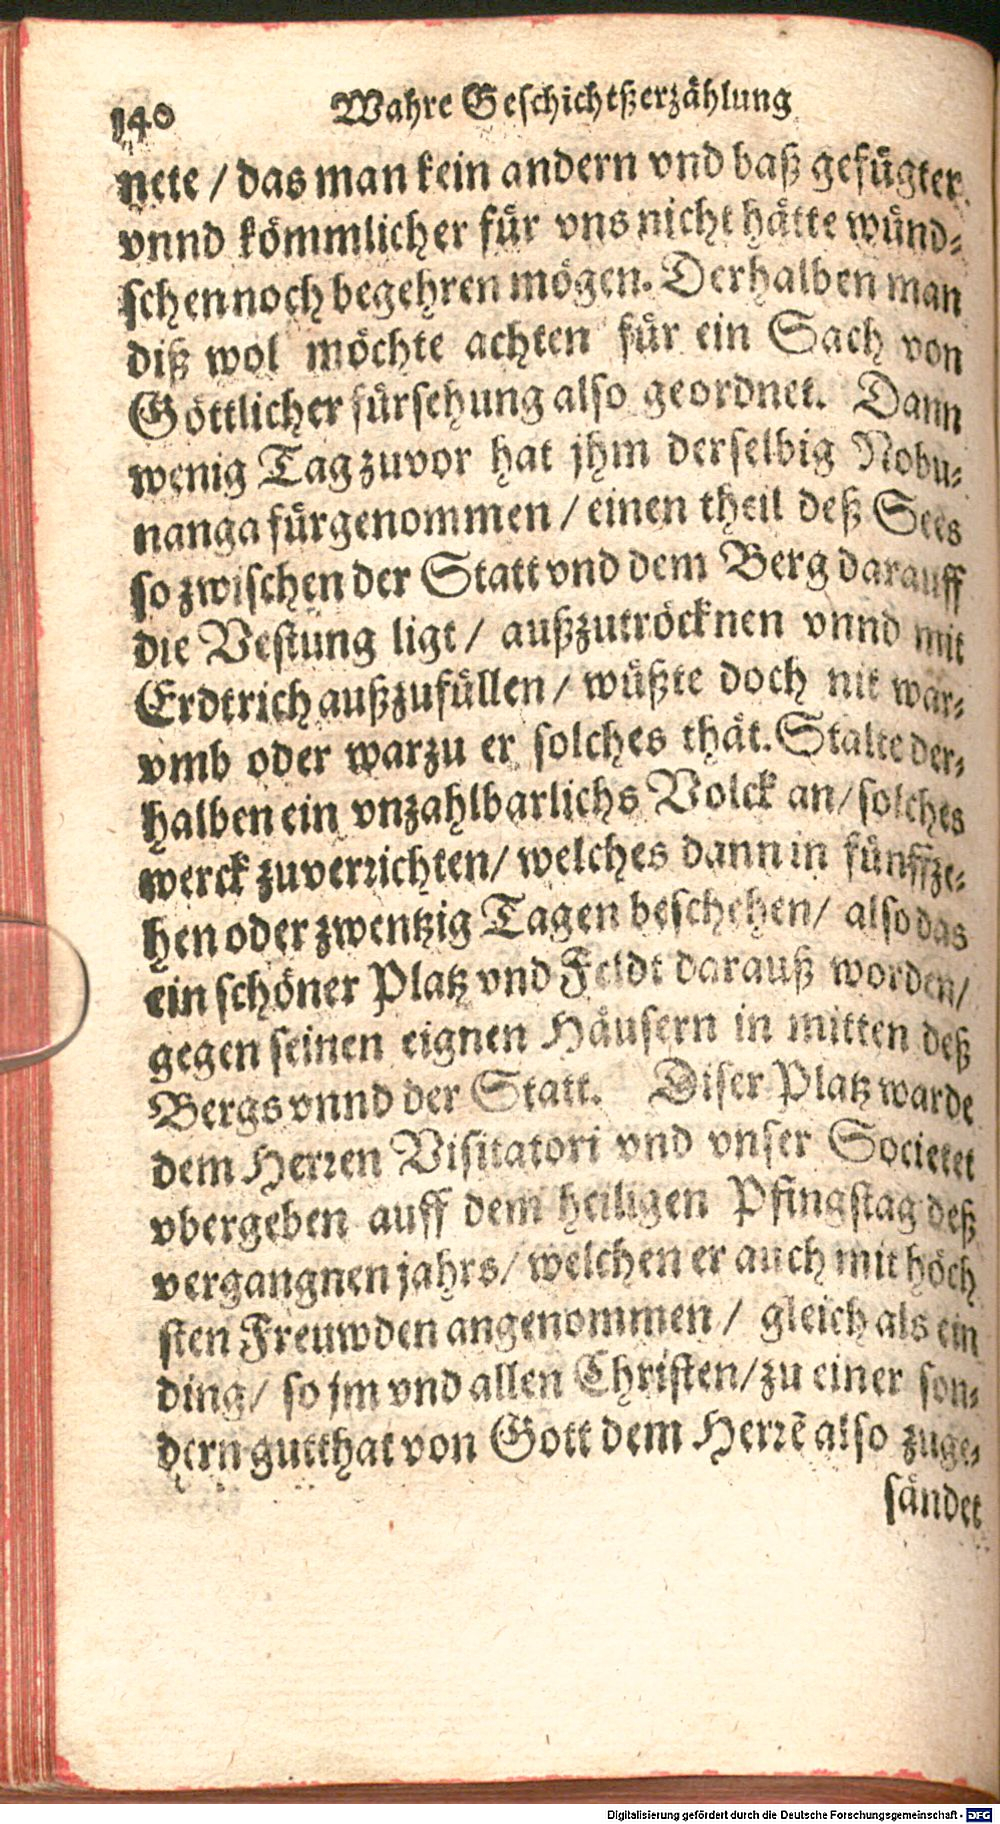 140 Wahre Geschichtßerzählung
nete / das man kein andern vnd baß gefügter
vnnd kömmlicher für vns nicht hätte wünd-
schen noch begehren mögen. Derhalben man
diß wol möchte achten für ein Sach von
Göttlicher fürsehung also geordnet. Dann
wenig Tag zuvor hat jhm derselbig Nobu-
nanga fürgenommen / einen theil deß Sees
so zwischen der Statt vnd dem Berg darauff
die Vestung ligt / außzutröcknen vnnd mit
Erdtrich außzufüllen / wüßte doch nit war-
vmb oder warzu er solches thät. Stalte der-
halben ein vnzahlbarlichs Volck an / solches
werck zuverrichten / welches dann in fünffze-
hen oder zwentzig Tagen beschehen / also das
ein schöner Platz vnd Feldt darauß worden /
gegen seinen eignen Häusern in mitten deß
Bergs vnnd der Statt. Diser Platz warde
dem Herren Visitatori vnd vnser Societet
vbergeben auff dem heiligen Pfingstag deß
vergangnen jahrs / welchen er auch mit höch
sten Freuwden angenommen / gleich als ein
ding / so jm vnd allen Christen / zu einer son-
dern gutthat von Gott dem Herrē also zuge-
sändet
Digitalisierung gefördert durch die Deutsche Forschungsgemeinschaft - DFG